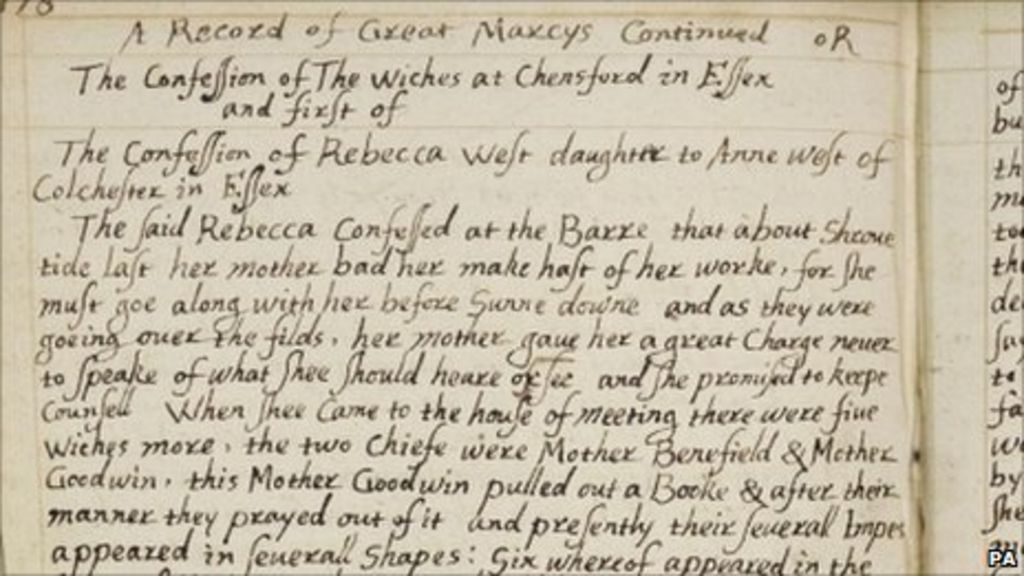 A Record of Great Marcys Continued oR
The Confeſſion of The Wiches at Chensford in Eſſex
and firſt of
The Confeſſion of Rebecca Weſt daughter to Anne Weſt of
Colcheſter in Eſſex
The ſaid Rebecca Confeſſed at the Barre that about Shroue
tide laſt her mother bad her make haſt of her worke, for ſhe
muſt goe along with her before Sunne downe and as they were
goeing ouer the filds, her mother gaue her a great Charge neuer
to ſpeake of what ſhee ſhould heare or ſee and ſhe promiſed to keepe
Counſell When ſhee Came to the houſe of meeting there were fiue
Wiches more, the two Chiefe were Mother Benefield & Mother
Goodwin, this Mother Goodwin pulled out a Booke & after their
manner they prayed out of it and preſently their ſeuerall Impes
appeared in ſeuerall Shapes: Six whereof appeared in the
of
bu
th
to
by
ſhe
PA